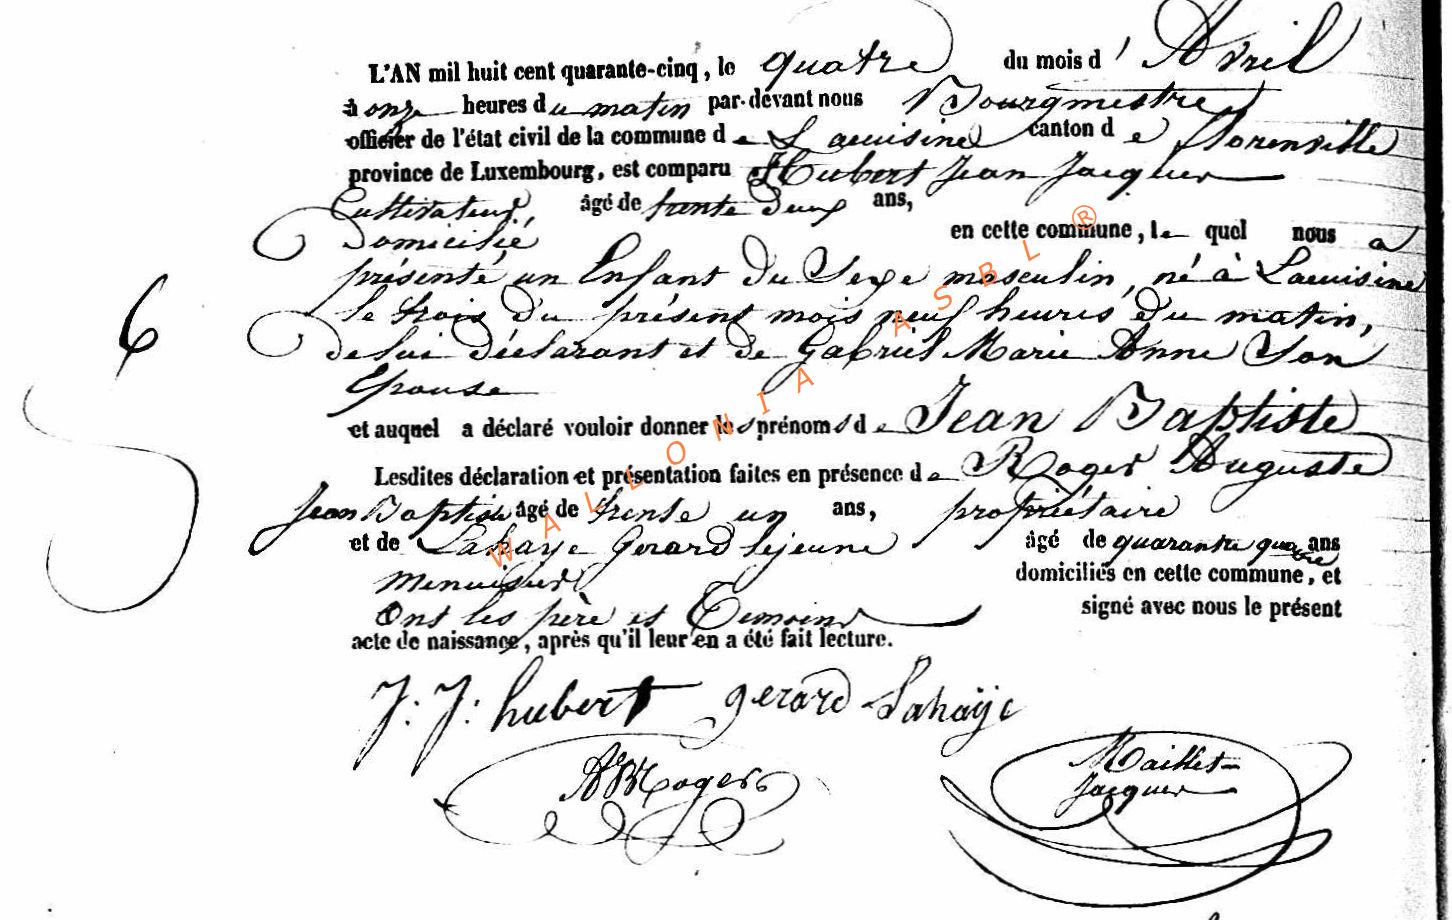 L'AN mil huit cent quarante-cinq, le quatre du mois d' Avril
à onze heures du matin par-devant nous Bourgmestre
officier de l'état civil de la commune de Lacuisine canton de Florenville
province de Luxembourg, est comparu Hubert Jean Jacques
Cultivateur, âgé de trente deux ans,
Domicilié en cette commune, lequel nous a
présenté un Enfant Du Sexe masculin, né à Lacuisine
le trois du présent mois neuf heures du matin,
de lui déclarant et de Gabriel Marie Anne Son
Epouse
et auquel a déclaré vouloir donner les prénoms de Jean Baptiste
Lesdites déclaration et présentation faites en présence de Roger Auguste
Jean Baptiste âgé de trente un ans, propriétaire
et de Lahaye Gerard lejeune âgé de quarante quatre ans
menuisier domiciliés en cette commune, et
Ont les père et Temoins signé avec nous le présent
acte de naissance, après qu'il leur en a été fait lecture.
6
J: J: hubert gerard Lahaÿe
Roger
Maillet-
Jacques
WALLONIA ASBL ®